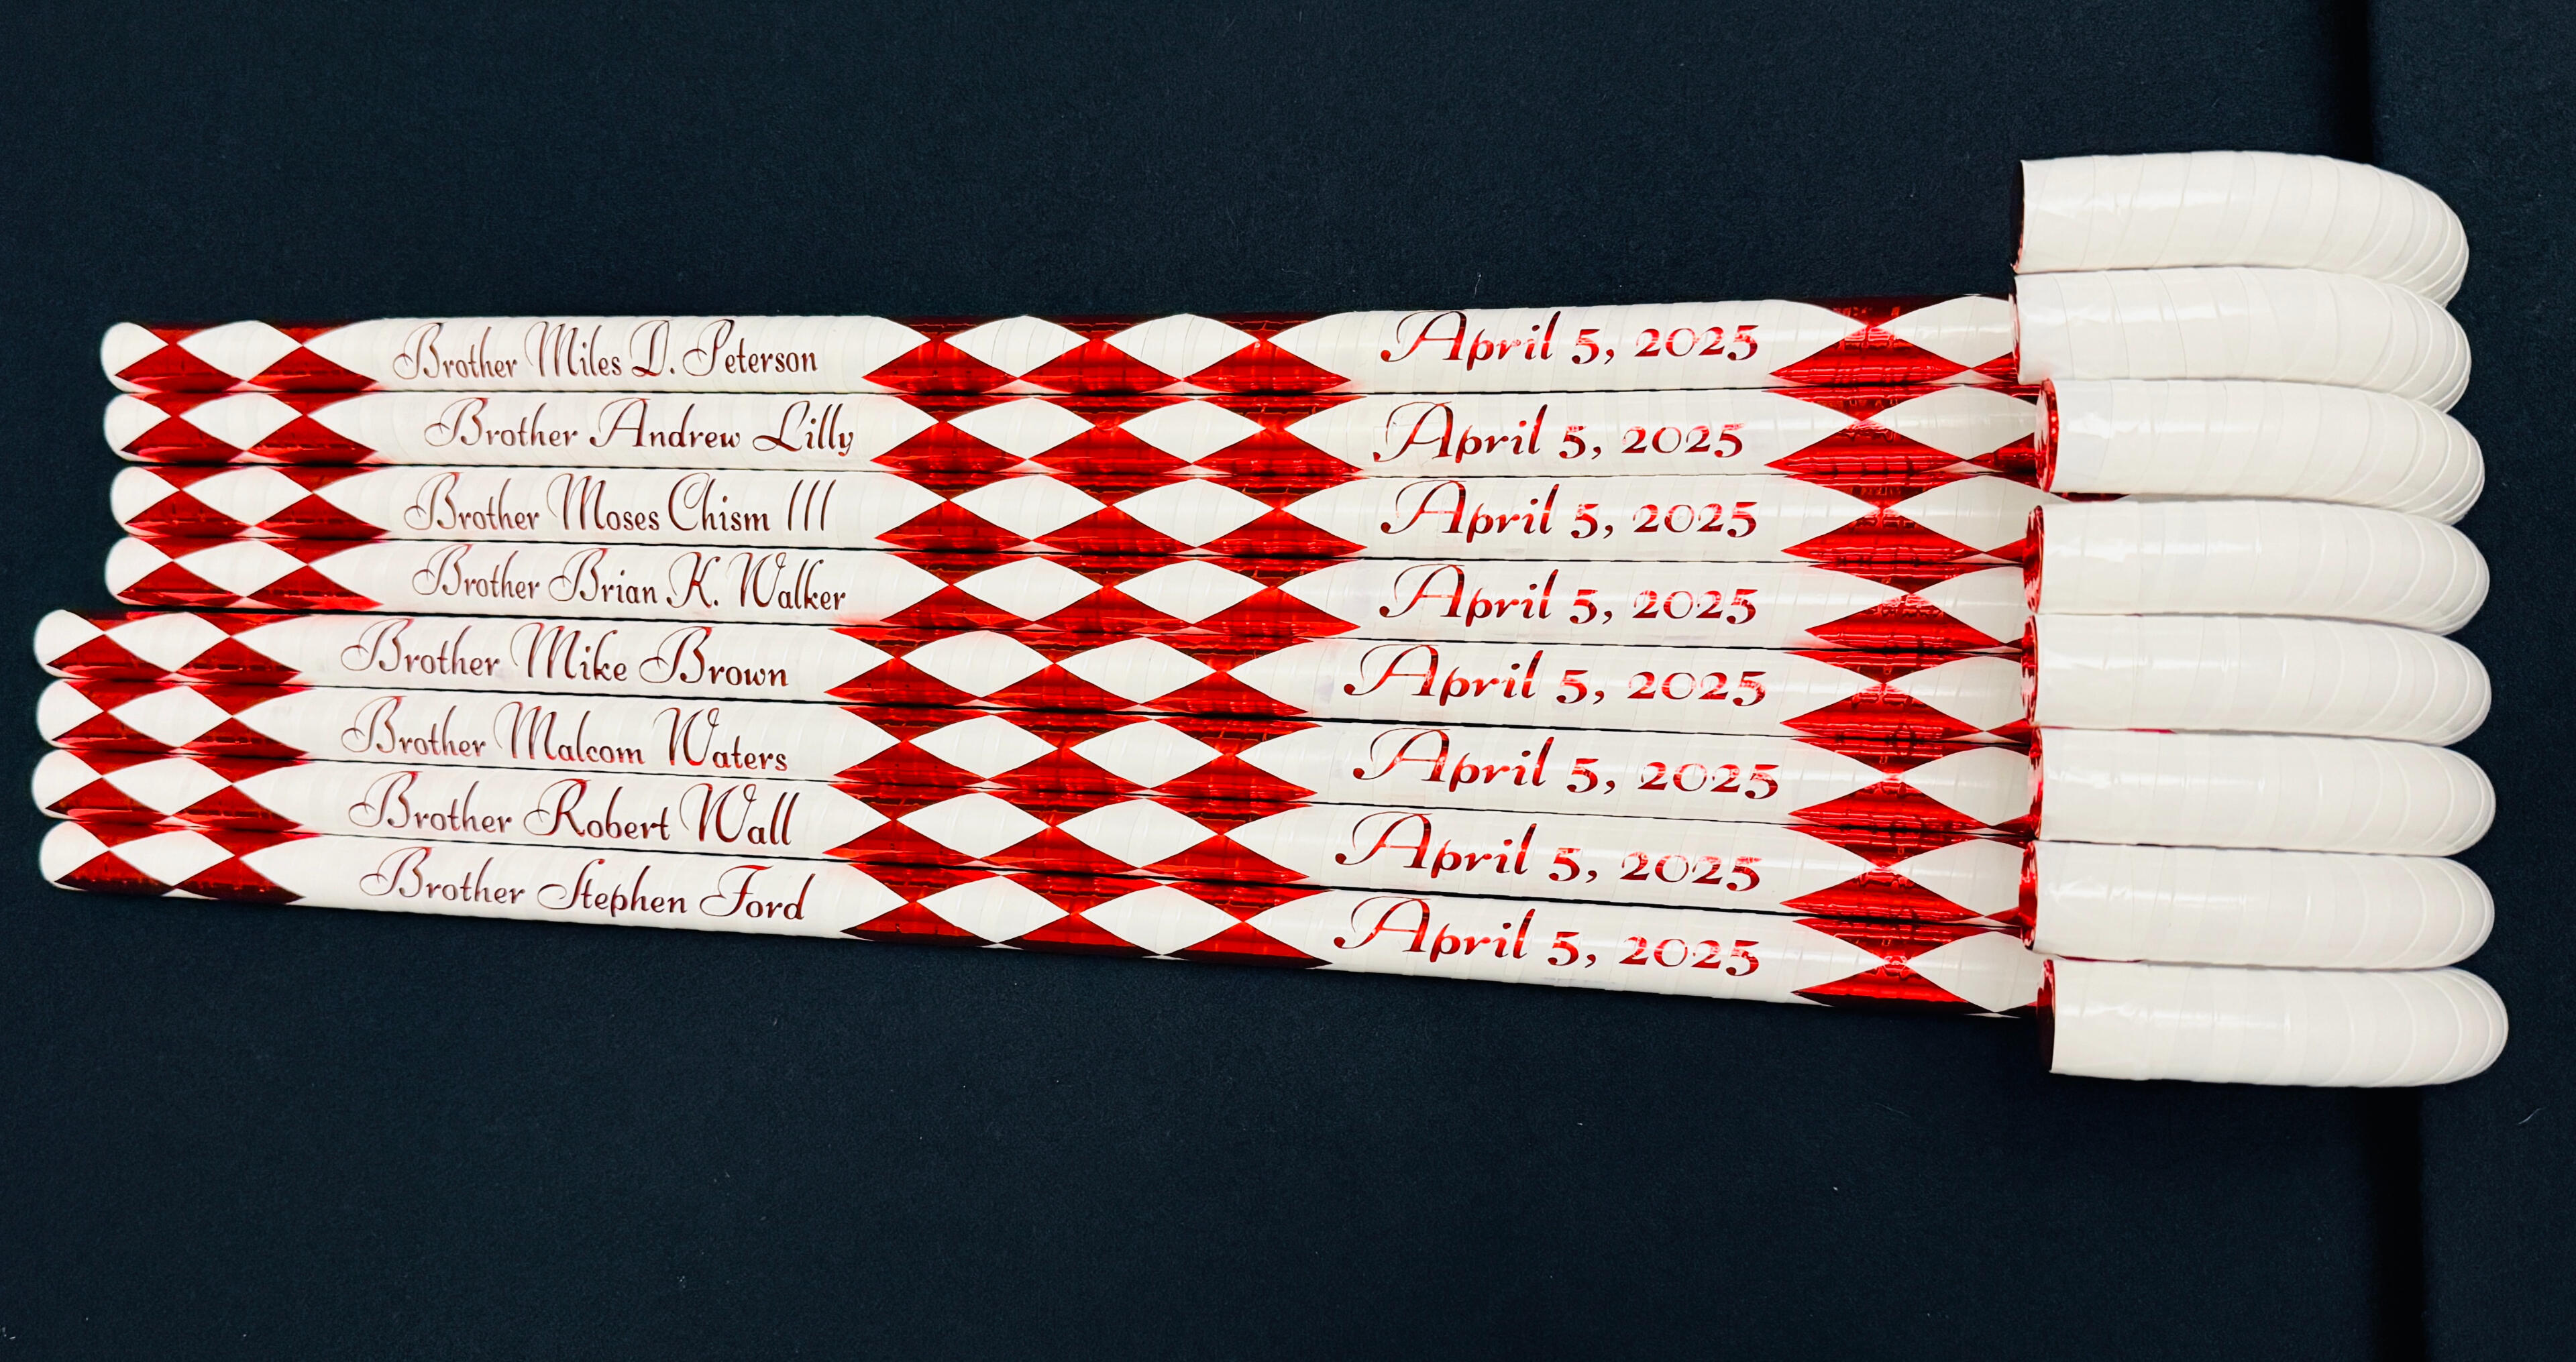 Brother Miles D. Peterson April 5, 2025
Brother Andrew Lilly April 5, 2025
Brother Moses Chism III April 5, 2025
Brother Brian K. Walker April 5, 2025
Brother Mike Brown April 5, 2025
Brother Malcom Waters April 5, 2025
Brother Robert Wall April 5, 2025
Brother Stephen Ford April 5, 2025